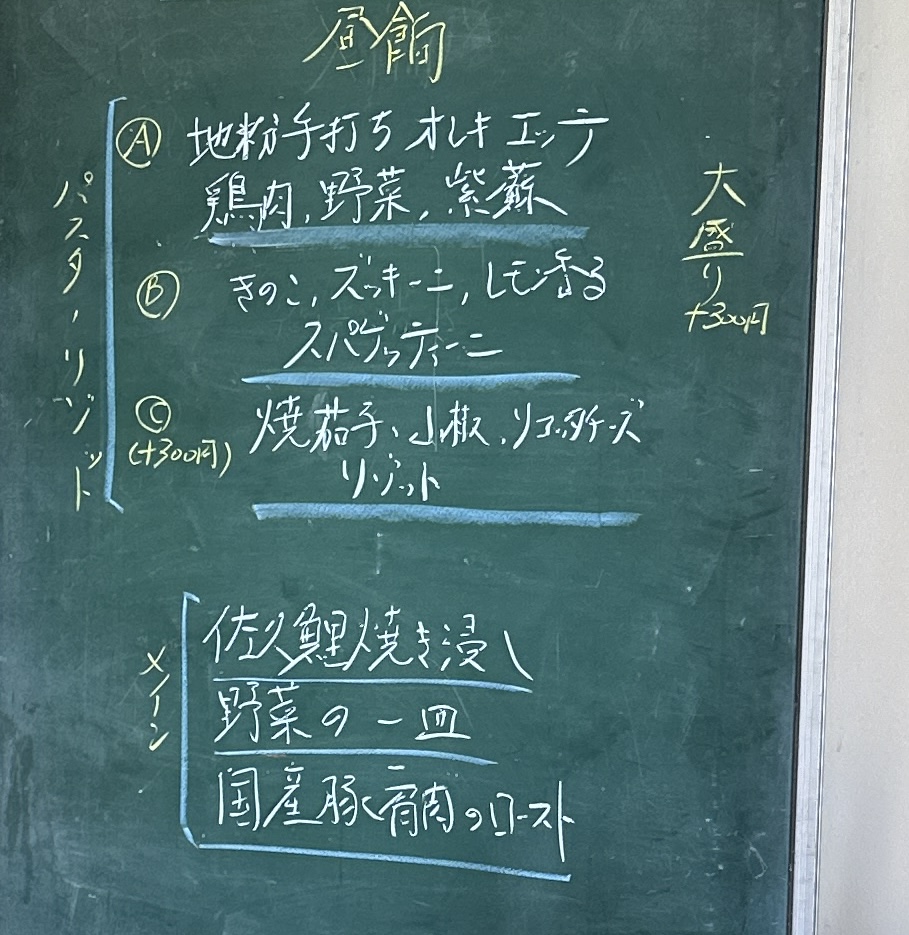 昼餉
パスタ・リゾット
Ⓐ 地粉手打ち オレキエッテ
鶏肉、野菜、紫蘇
Ⓑ きのこ、ズッキーニ、レモン香る
スパゲッティーニ
Ⓒ 焼茄子、山椒、リコッタチーズ
(+300円)
リゾット
大盛り
+300円
メイン
佐久鯉焼き浸し
野菜の一皿
国産豚肩肉のロースト